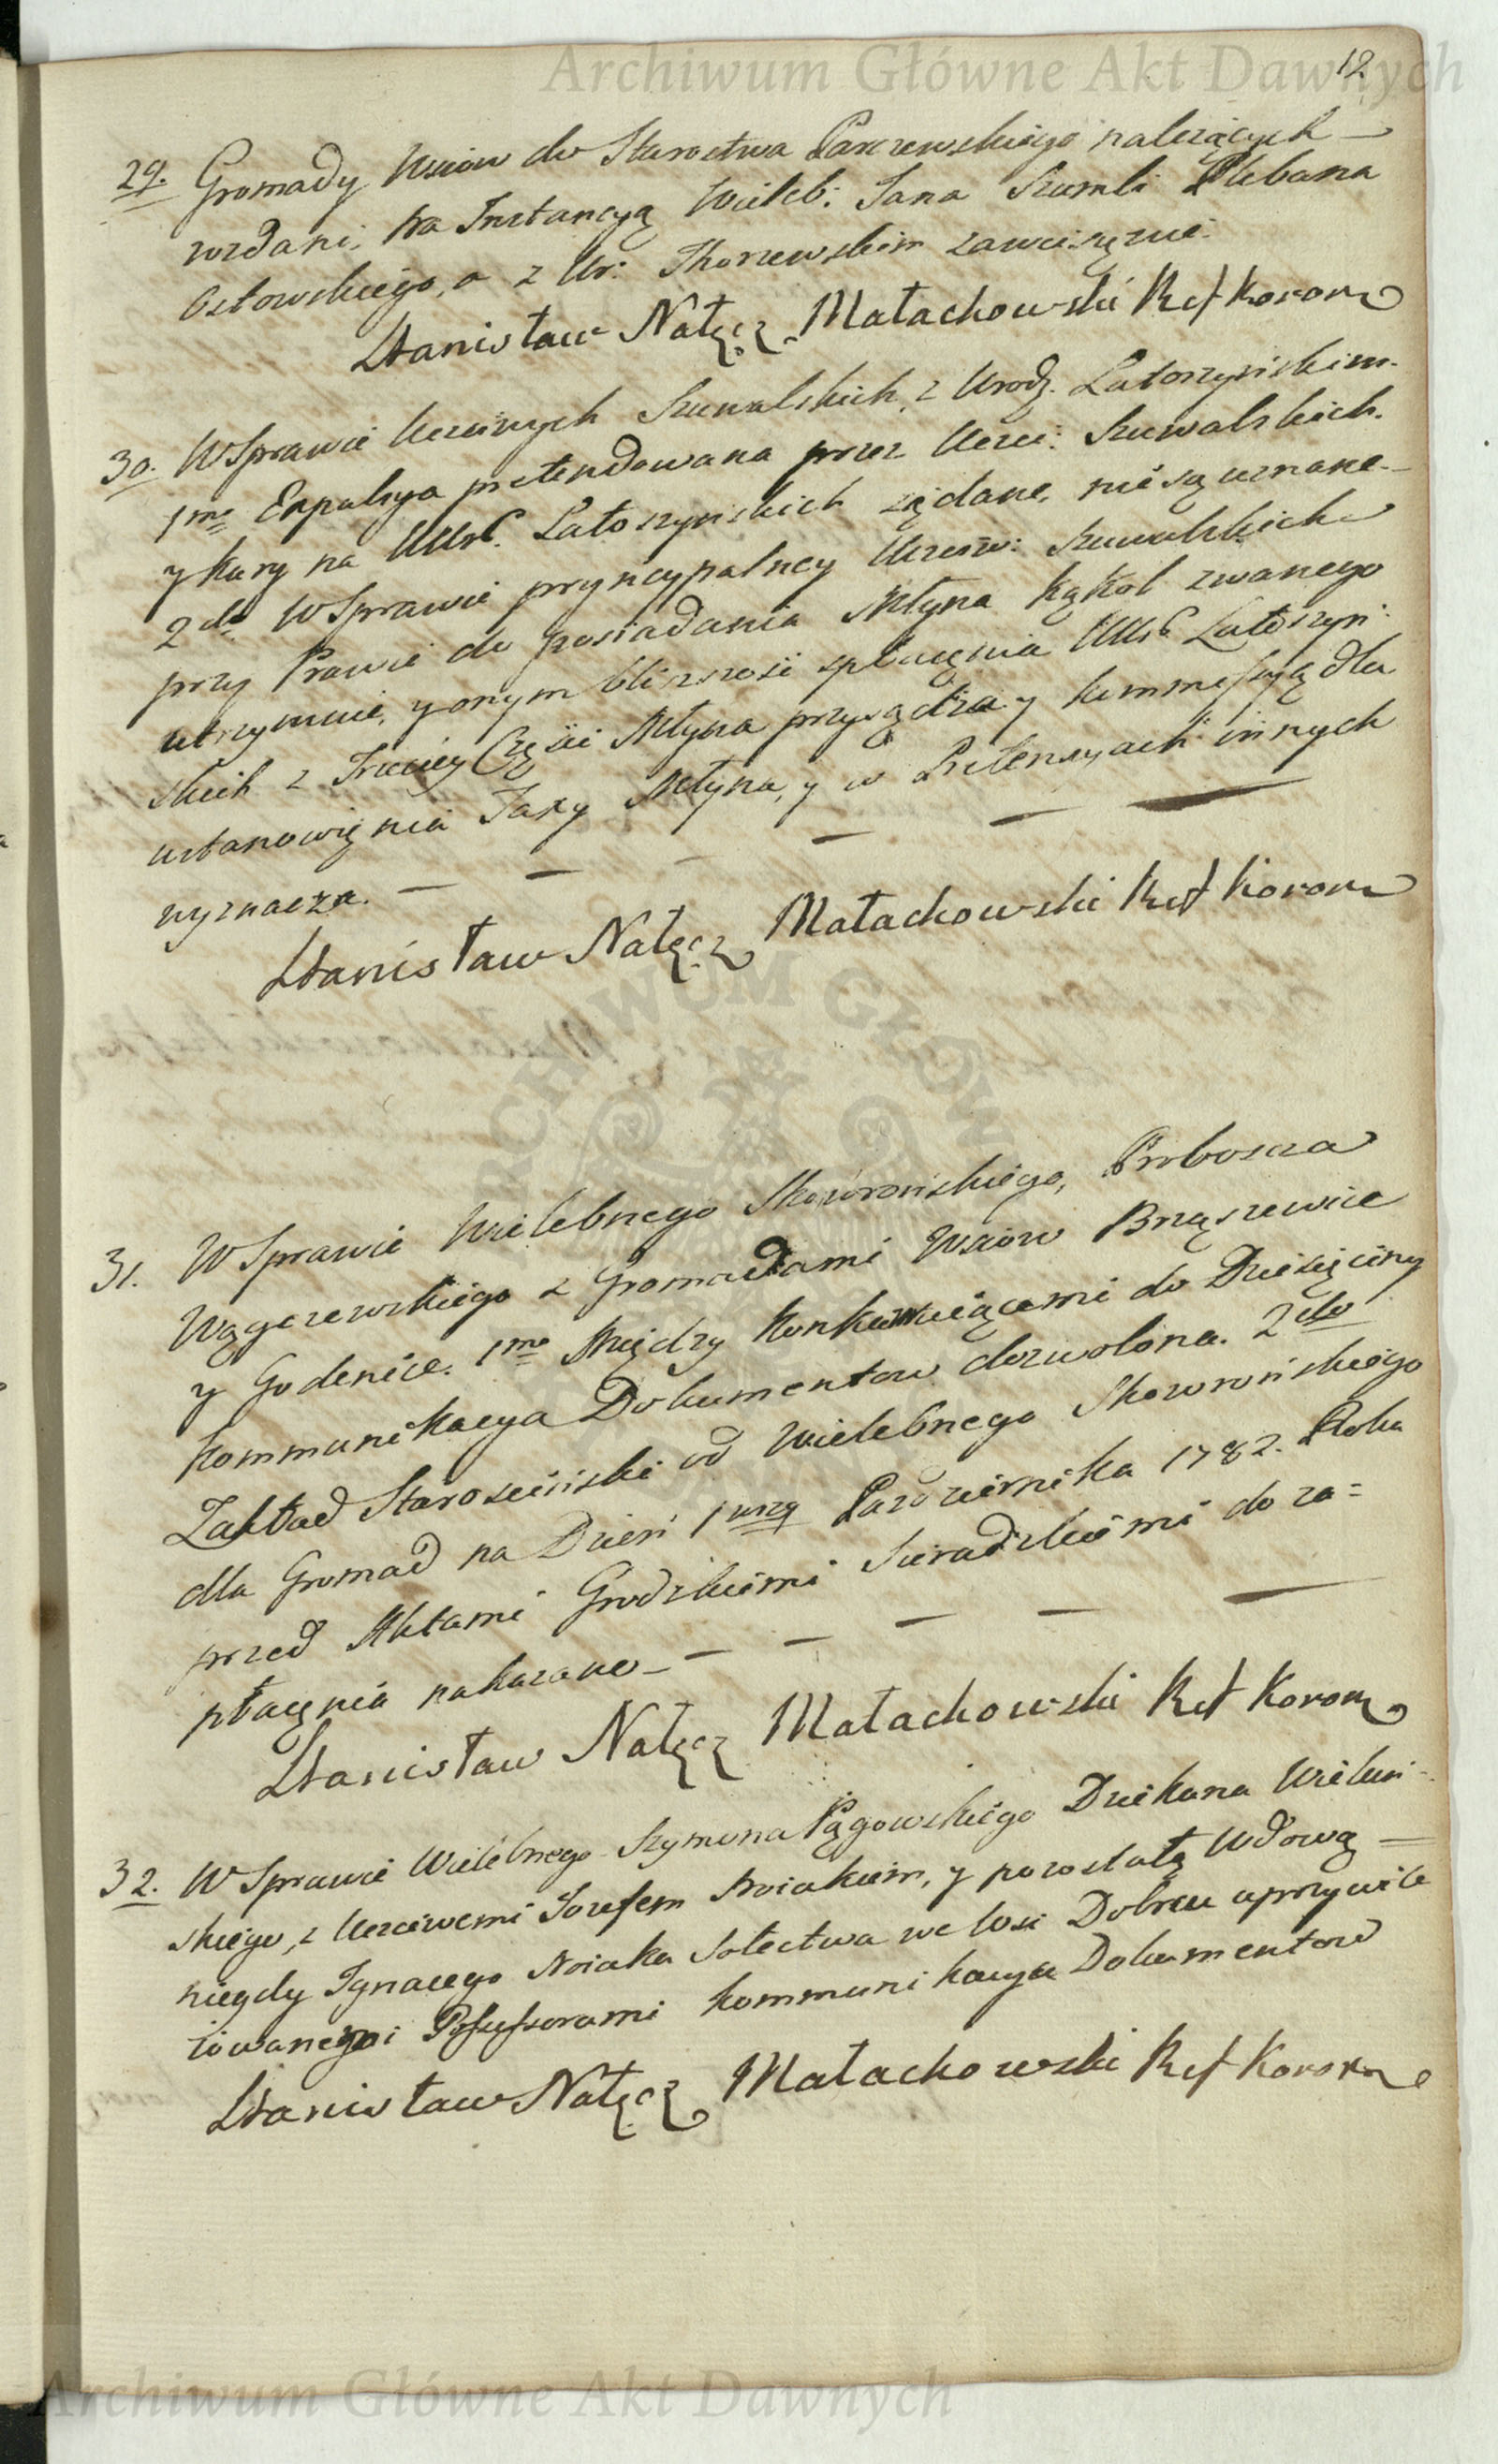 Archiwum Główne Akt Dawnych
12
29. Gromady Wsiow do Starostwa Parczewskiego należących
wzdani, na Instancyą Wieleb: Jana Szumli Plebana
Ostowskiego, a z Ur: Skorzewskim zawieszenie.
Stanisław Nałęcz Małachowski Ref Koronn
30. W Sprawie Uczciwych Szuwalskich, z Urodz. Latoszyńskim.
1mo Expulsya pretendowana przez Uczci: Szuwalskich.
y kary na UUrb. Latoszynskich żądane, nie są uznane.
2do W Sprawie pryncypalney Uczciw: Szuwalskich
przy Prawie do posiadania Młyna Kąkol zwanego
utrzymuie, y onym bliszość spłacęnia UUrb Latoszyń:
skich z Trzeciey Części Młyna przysądza y kommissyą dla
ustanowięnia Taxy Młyna, y w Pretensyach innych
wyznacza.
Stanisław Nałęcz Małachowski Ref Koronn
31. W Sprawie Wielebnego Skowrońskiego, Proboszcza
Wągczewskiego z Gromadami Wsiow Brąszewice
y Godenice. 1mo Między konkurruiącemi do Dziesięciny
kommunikacya Dokumentow dozwolona. 2do
Zakład Starościński od Wielebnego Skowrońskiego
dla Gromad na Dzień 1wszy Pazdziernika 1782. Roku
przed Aktami Grodzkiemi Sieradzkiemi do za=
płacęnia nakazano
Stanisław Nałęcz Małachowski Ref Koronn
32. W Sprawie Wielebnego Szymona Pągowskiego Dziekana Wieluń-
skiego, z Uczciwemi Jozefem Noiakiem, y pozostałą Wdową
niegdy Ignacego Noiaka Sołectwa we Wsi Dobrcu uprzywile
iowanego Possessorami kommunikacya Dokumentow
Stanisław Nałęcz Małachowski Ref Koronn
Archiwum Główne Akt Dawnych